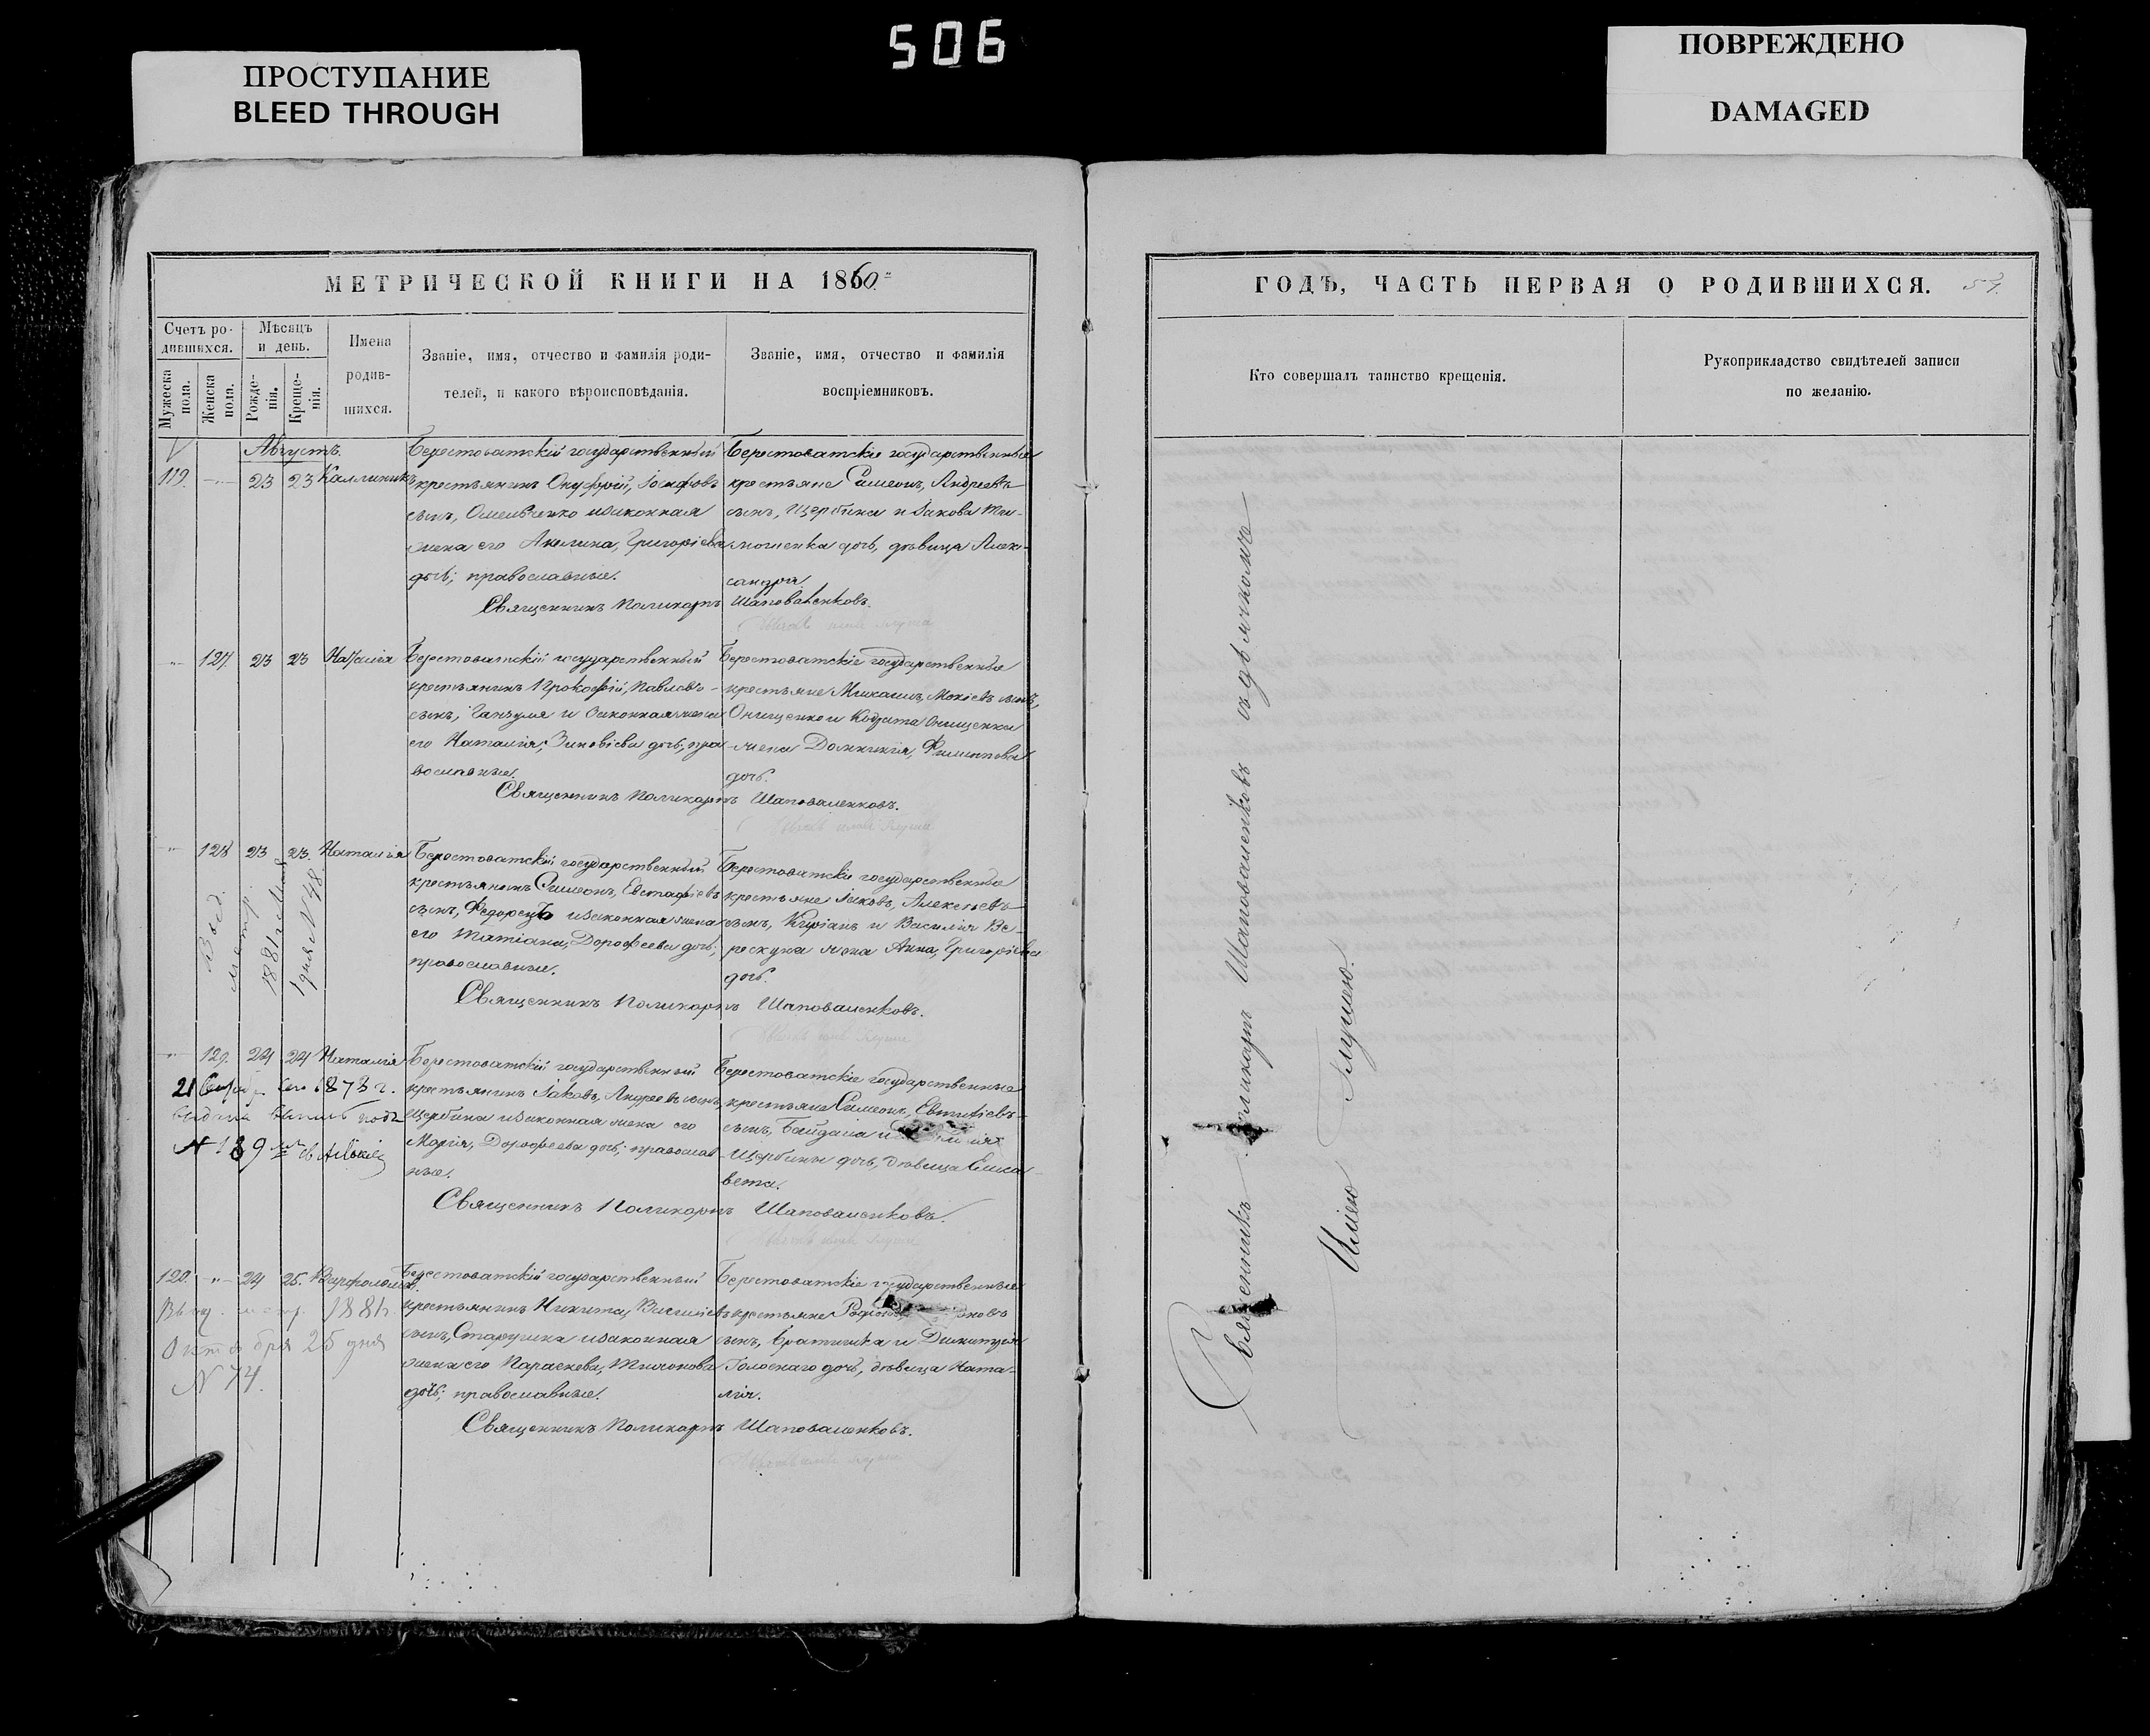 506
ПРОСТУПАНИЕ
BLEED THROUGH
ПОВРЕЖДЕНО
DAMAGED
МЕТРИЧЕСКОЙ КНИГИ НА 1860
Счетъ ро-
дившихся.
Мѣсяцъ
и день.
Имена
родив-
шихся.
Званіе, имя, отчество и фамилія роди-
телей, и какого вѣроисповѣданія.
Званіе, имя, отчество и фамилія
воспріемниковъ.
Мужеска
пола.
Женска
пола.
Рожде-
нія.
Креще-
нія.
Августъ.
119. 23 23 Каллиникъ
Берестоватскій государственный
крестьянинъ Онуфрій, Іосифовъ
сынъ, Омельченко и законная
жена его Акилина, Григоріева
дочь; православные.
Берестоватскіе государственные
крестьяне Симеонъ, Андреевъ
сынъ, Щербина и Іакова Ти-
мошенка дочь, дѣвица Алек-
сандра.
Священникъ Поликарпъ Шаповаленковъ.
127. 23 23 Наталія
Берестоватскій государственный
крестьянинъ Прокофій, Павловъ
сынъ, Ганзуля и законная жена
его Наталія, Зиновіева дочь; пра-
вославные.
Берестоватскіе государственные
крестьяне Михаилъ, Мокіевъ сынъ,
Онищенко и Кодрата Онищенка
жена Домникія, Филиппова
дочь.
Священникъ Поликарпъ Шаповаленковъ.
128 23 23. Наталія
метр.
1881 г. Мая
1 дня N 48.
Берестоватскій государственный
крестьянинъ Симеонъ, Евстафіевъ
сынъ, Федорецъ и законная жена
его Татіана, Дорофеева дочь;
православные.
Берестоватскіе государственные
крестьяне Іаковъ, Алексѣевъ
сынъ, Кипріанъ и Василія Ве-
рескуна жена Анна, Григоріева
дочь.
Священникъ Поликарпъ Шаповаленковъ.
129. 24 24 Наталія
21 1878 г.
выдана выпись подъ
N 139
Берестоватскій государственный
крестьянинъ Іаковъ, Андреевъ сынъ,
Щербина и законная жена его
Марія, Дорофеева дочь; православ-
ные.
Берестоватскіе государственные
крестьяне Симеонъ,
сынъ, и
Щербины дочь, дѣвица Елиса-
вета.
Священникъ Поликарпъ Шаповаленковъ.
120. 24 25. Варфоломей.
метр. 1881 г.
Октября 25 дня
N 74.
Берестоватскій государственный
крестьянинъ Никита, Василіевъ
сынъ, Старушка и законная
жена его Параскева, Тихонова
дочь; православные.
Берестоватскіе государственные
крестьяне
сынъ, Братишка и Димитрія
Голоснаго дочь, дѣвица Ната-
лія.
Священникъ Поликарпъ Шаповаленковъ.
ГОДЪ, ЧАСТЬ ПЕРВАЯ О РОДИВШИХСЯ. 57.
Кто совершалъ таинство крещенія.
Рукоприкладство свидѣтелей записи
по желанію.
Священникъ Поликарпъ Шаповаленковъ съ дьячкомъ
Ильею Глушею.